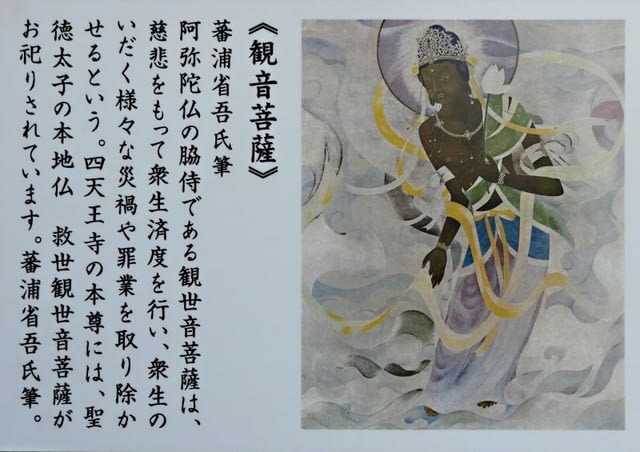 《観音菩薩》
蕃浦省吾氏筆
阿弥陀仏の脇侍である観世音菩薩は、
慈悲をもって衆生済度を行い、衆生の
いだく様々な災禍や罪業を取り除か
せるという。四天王寺の本尊には、聖
徳太子の本地仏　救世観世音菩薩が
お祀りされています。蕃浦省吾氏筆。